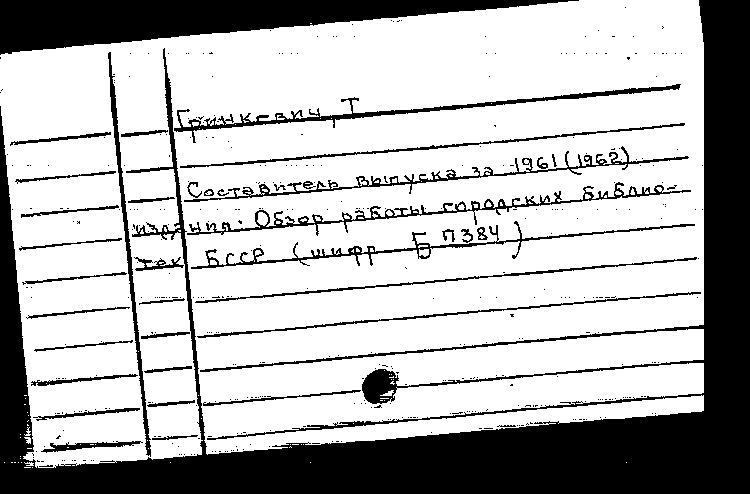 Гринкевич, Т
Составитель выпуска за 1961 (1962)
издания: Обзор работы городских библио-
тек БССР (шифр Б П384)